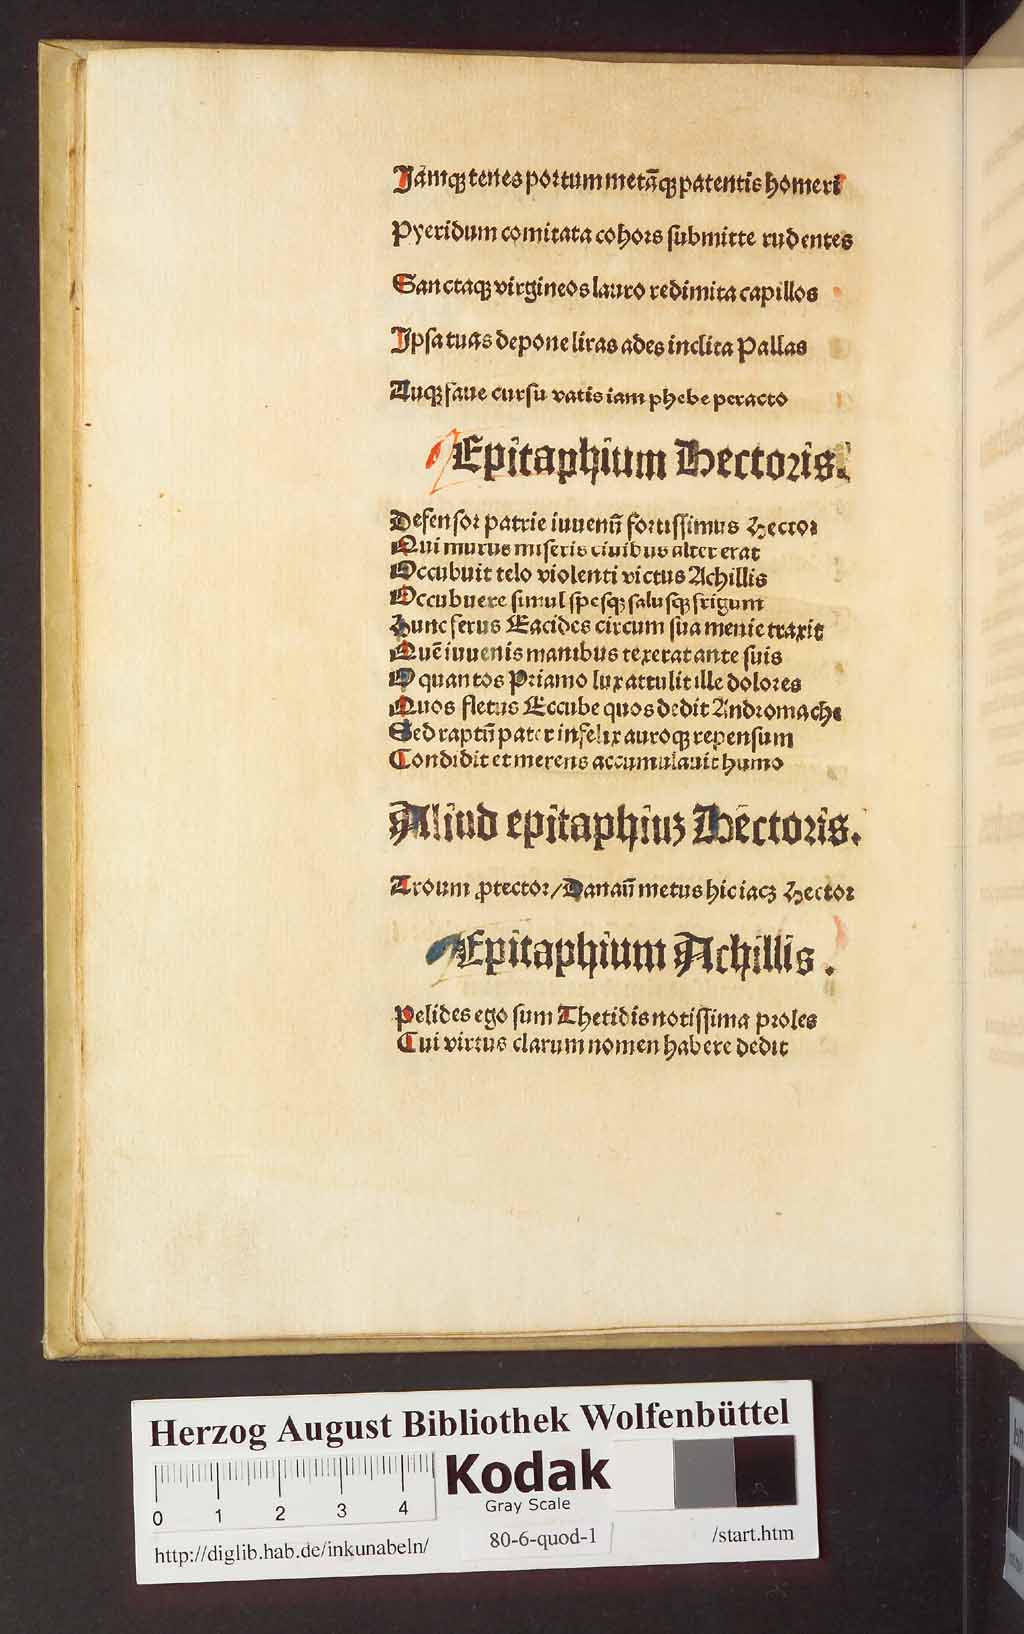 Jamqꝫ tenes portum metāqꝫ patentis homeri
Pyeridum comitata cohors submitte rudentes
Sanctaqꝫ virgineos lauro redimita capillos
Ipsa tuas depone liras ades inclita Pallas
Auqꝫ faue cursu vatis iam phebe peracto
Epitaphium Hectoris.
Defensor patrie iuuenū fortissimus Hector
Qui murus miseris ciuibus alter erat
Occubuit telo violenti victus Achillis
Occubuere simul spesqꝫ salusqꝫ frigum
Hunc ferus Eacides circum sua menie traxit
Quē iuuenis manibus texerat ante suis
O quantos Priamo lux attulit ille dolores
Quos fletus Eccube quos dedit Andromache
Sed raptū pater infelix auroqꝫ repensum
Condidit et merens accumulauit humo
Aliud epitaphiuꝫ Hectoris.
Troum ꝓtector/Danaū metus hic iacꝫ Hector
Epitaphium Achillis.
Pelides ego sum Thetidis notissima proles
Cui virtus clarum nomen habere dedit
Herzog August Bibliothek Wolfenbüttel
0 1 2 3 4
Kodak
Gray Scale
http://diglib.hab.de/inkunabeln/ 80-6-quod-1 /start.htm